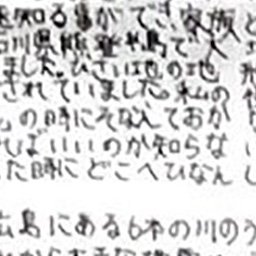 知る事ができ家族と
川県能登半島で大
ました。ひさい地の地
されていました。私の
の時にそなえておか
ればいいのか知らな
た時にどこへひなんし
広島にある6本の川のう